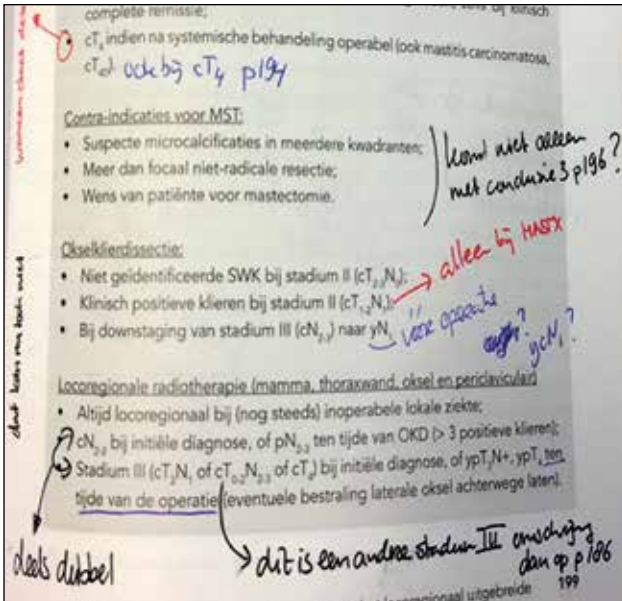 complete remissie;
cT4 indien na systemische behandeling operabel (ook mastitis carcinomatosa,
cT4d). ook bij cT4 p194
Contra-indicaties voor MST:
• Suspecte microcalcificaties in meerdere kwadranten;
• Meer dan focaal niet-radicale resectie;
• Wens van patiënte voor mastectomie.
komt niet alleen
met conclusie 3 p196?
Okselklierdissectie:
• Niet geïdentificeerde SWK bij stadium II
• Klinisch positieve klieren bij stadium II
alleen bij MASTX
• Bij downstaging van stadium III (cN2-3) naar yN
vóór operatie
ycN1?
Locoregionale radiotherapie (mamma, thoraxwand, oksel en periclaviculair)
• Altijd locoregionaal bij (nog steeds) inoperabele lokale ziekte;
cN2-3 bij initiële diagnose, of pN2-3 ten tijde van OKD (> 3 positieve klieren);
Stadium III (cT3N1 of cT0-2N2-3 of cT4) bij initiële diagnose, of ypT3N+, ypT4 ten
tijde van de operatie (eventuele bestraling laterale oksel achterwege laten).
deels dubbel
dit is een andere stadium III omschrijving
dan op p186
locoregionaal uitgebreide
199